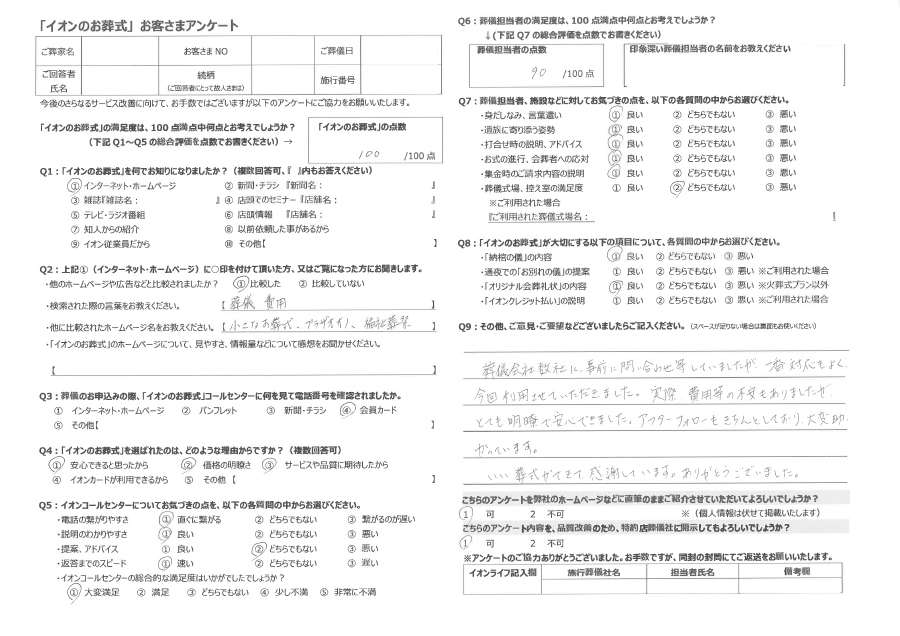 「イオンのお葬式」お客さまアンケート
ご葬家名 お客さまNO ご葬儀日
ご回答者氏名 続柄（ご回答者にとって故人さまは） 施行番号
今後のさらなるサービス改善に向けて、お手数ではございますが以下のアンケートにご協力をお願いいたします。
「イオンのお葬式」の満足度は、100点満点中何点とお考えでしょうか？
（下記Q1～Q5の総合評価を点数でお書きください）→
「イオンのお葬式」の点数
100 /100点
Q1：「イオンのお葬式」を何でお知りになりましたか？（複数回答可、『 』内もお答えください）
① インターネット・ホームページ ② 新聞・チラシ『新聞名： 』
③ 雑誌『雑誌名： 』 ④ 店頭でのセミナー『店舗名： 』
⑤ テレビ・ラジオ番組 ⑥ 店頭情報 『店舗名： 』
⑦ 知人からの紹介 ⑧ 以前依頼した事があるから
⑨ イオン従業員だから ⑩ その他【 】
Q2：上記①（インターネット・ホームページ）に○印を付けて頂いた方、又はご覧になった方にお聞きします。
・他のホームページや広告などと比較されましたか？ ①比較した ②比較していない
・検索された際の言葉をお教えください。 【 葬儀 費用 】
・他に比較されたホームページ名をお教えください。【 小さなお葬式、プラザオイノ、福祉葬祭 】
・「イオンのお葬式」のホームページについて、見やすさ、情報量などについて感想をお聞かせください。
【 】
Q3：葬儀のお申込みの際、「イオンのお葬式」コールセンターに何を見て電話番号を確認されましたか。
① インターネット・ホームページ ② パンフレット ③ 新聞・チラシ ④ 会員カード
⑤ その他【 】
Q4：「イオンのお葬式」を選ばれたのは、どのような理由からですか？（複数回答可）
① 安心できると思ったから ② 価格の明瞭さ ③ サービスや品質に期待したから
④ イオンカードが利用できるから ⑤ その他 【 】
Q5：イオンコールセンターについてお気づきの点を、以下の各質問の中からお選びください。
・電話の繋がりやすさ ① 直ぐに繋がる ② どちらでもない ③ 繋がるのが遅い
・説明のわかりやすさ ① 良い ② どちらでもない ③ 悪い
・提案、アドバイス ① 良い ② どちらでもない ③ 悪い
・返答までのスピード ① 速い ② どちらでもない ③ 遅い
・イオンコールセンターの総合的な満足度はいかがでしたでしょうか？
① 大変満足 ② 満足 ③ どちらでもない ④ 少し不満 ⑤ 非常に不満
Q6：葬儀担当者の満足度は、100点満点中何点とお考えでしょうか？
↓（下記Q7の総合評価を点数でお書きください）
葬儀担当者の点数 印象深い葬儀担当者の名前をお教えください
90 /100点
Q7：葬儀担当者、施設などに対してお気づきの点を、以下の各質問の中からお選びください。
・身だしなみ、言葉遣い ① 良い ② どちらでもない ③ 悪い
・遺族に寄り添う姿勢 ① 良い ② どちらでもない ③ 悪い
・打合せ時の説明、アドバイス ① 良い ② どちらでもない ③ 悪い
・お式の進行、会葬者への応対 ① 良い ② どちらでもない ③ 悪い
・集金時のご請求内容の説明 ① 良い ② どちらでもない ③ 悪い
・葬儀式場、控え室の満足度 ① 良い ② どちらでもない ③ 悪い
※ご利用された場合
『ご利用された葬儀式場名： 』
Q8：「イオンのお葬式」が大切にする以下の項目について、各質問の中からお選びください。
・「納棺の儀」の内容 ① 良い ② どちらでもない ③ 悪い
・通夜での「お別れの儀」の提案 ① 良い ② どちらでもない ③ 悪い ※ご利用された場合
・「オリジナル会葬礼状」の内容 ① 良い ② どちらでもない ③ 悪い ※火葬式プラン以外
・「イオンクレジット払い」の説明 ① 良い ② どちらでもない ③ 悪い ※ご利用された場合
Q9：その他、ご意見・ご要望などございましたらご記入ください。（スペースが足りない場合は裏面もお使いください）
葬儀会社数社に、事前に問い合わせ等していましたが、一番対応もよく、
今回利用させていただきました。実際、費用等の不安もありましたが、
とても明瞭で安心できました。アフターフォローもきちんとしており、大変助
かっています。
いい葬式ができて感謝しています。ありがとうございました。
こちらのアンケートを弊社のホームページなどに直筆のままご紹介させていただいてよろしいでしょうか？
1 可 2 不可 ※（個人情報は伏せて掲載いたします）
こちらのアンケート内容を、品質改善のため、特約店葬儀社に開示してもよろしいでしょうか？
1 可 2 不可
※アンケートのご協力ありがとうございました。お手数ですが、同封の封筒にてご返送をお願いいたします。
イオンライフ記入欄 施行葬儀社名 担当者氏名 備考欄